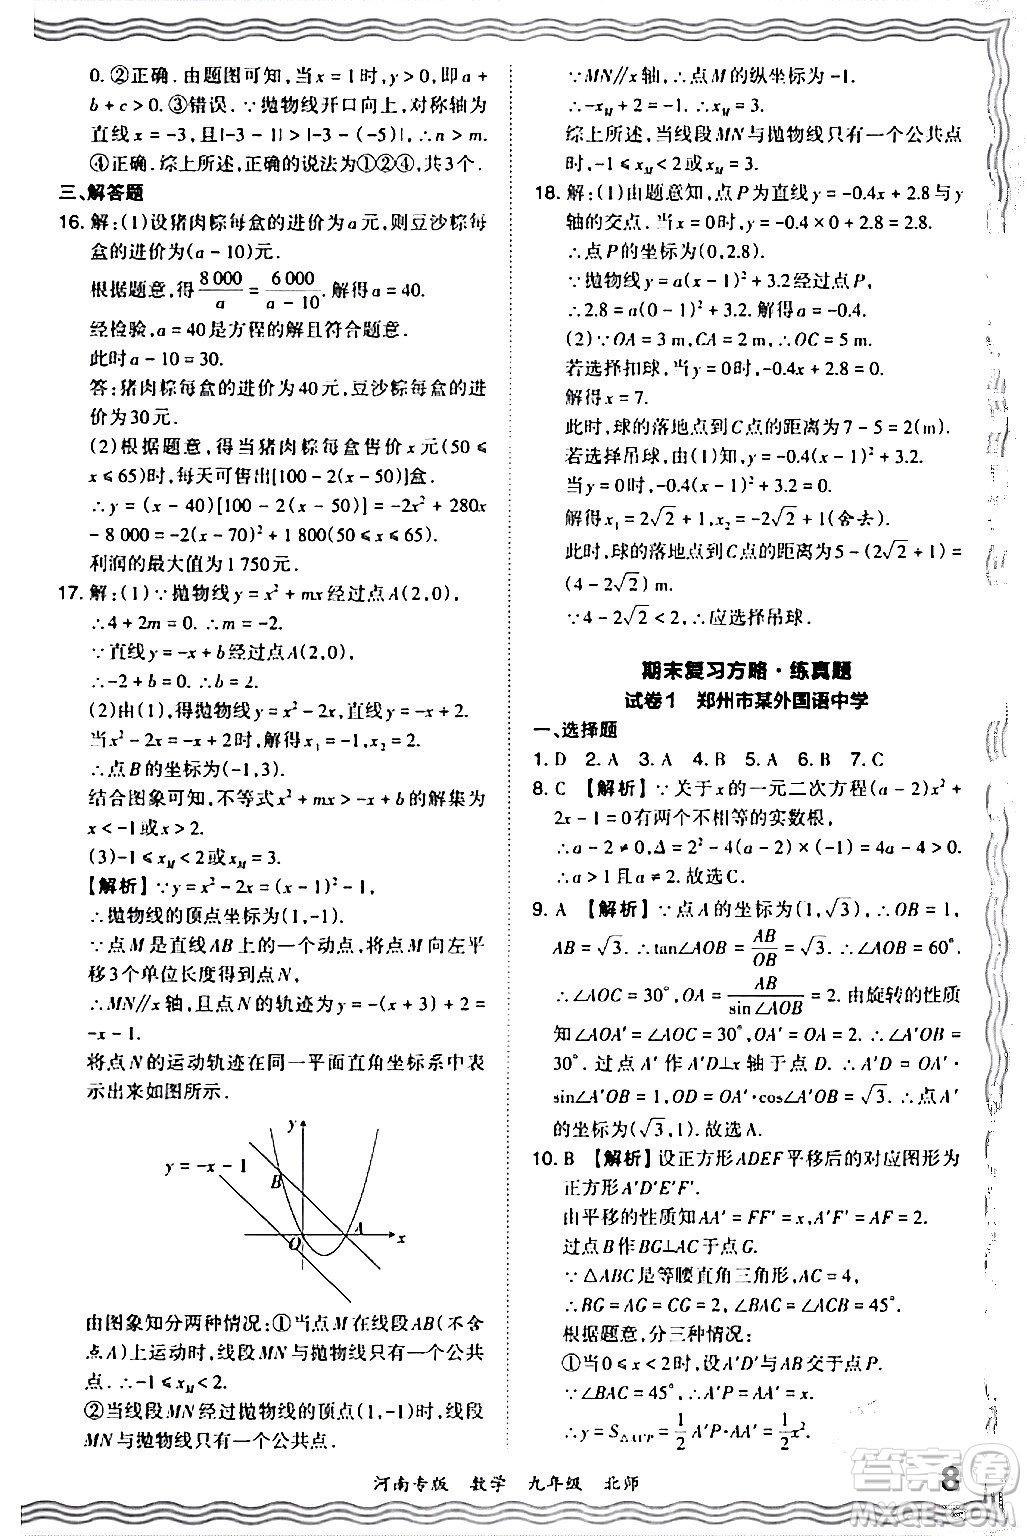 0. ②正确. 由题图可知,当x=1时,y>0,即a+
b+c>0. ③错误. ∵抛物线开口向上,对称轴为
直线x=-3,且|-3-1|>|-3-(-5)|,∴n>m.
④正确. 综上所述,正确的说法为①②④,共3个.
三、解答题
16. 解:(1)设猪肉粽每盒的进价为a元,则豆沙粽每
盒的进价为(a-10)元.
根据题意,得8 000/a=6 000/(a-10). 解得a=40.
经检验,a=40是方程的解且符合题意.
此时a-10=30.
答:猪肉粽每盒的进价为40元,豆沙粽每盒的进
价为30元.
(2)根据题意,得当猪肉粽每盒售价x元(50≤
x≤65)时,每天可售出[100-2(x-50)]盒.
∴y=(x-40)[100-2(x-50)]=-2x²+280x
-8 000=-2(x-70)²+1 800(50≤x≤65).
利润的最大值为1 750元.
17. 解:(1)∵抛物线y=x²+mx过点A(2,0),
∴4+2m=0. ∴m=-2.
∵直线y=-x+b过点A(2,0),
∴-2+b=0. ∴b=2.
(2)由(1),得抛物线y=x²-2x,直线y=-x+2.
当x²-2x=-x+2时,解得x₁=-1,x₂=2.
∴点B的坐标为(-1,3).
结合图象可知,不等式x²+mx>-x+b的解集为
x<-1或x>2.
(3)-1≤x_M<2或x_M=3.
【解析】∵y=x²-2x=(x-1)²-1,
∴抛物线的顶点坐标为(1,-1).
∵点M是直线AB上的一个动点,将点M向左平
移3个单位长度得到点N,
∴MN∥x轴,且点N的轨迹为y=-(x+3)+2
=-x-1.
将点N的运动轨迹在同一平面直角坐标系中表
示出来如图所示.
y
y=-x-1
B
A
O
x
由图象知分两种情况:①当点M在线段AB(不含
点A)上运动时,线段MN与抛物线有一个公共
点. ∴-1≤x_M<2.
②当线段MN经过抛物线的顶点(1,-1)时,线段
MN与抛物线只有一个公共点.
∵MN∥x轴,∴点M的纵坐标为-1.
∴-x_M+2=-1. ∴x_M=3.
综上所述,当线段MN与抛物线只有一个公共点
时,-1≤x_M<2或x_M=3.
18. 解:(1)由题意知,点P为直线y=-0.4x+2.8与y
轴的交点. 当x=0时,y=-0.4×0+2.8=2.8.
∴点P的坐标为(0,2.8).
∵抛物线y=a(x-1)²+3.2经过点P,
∴2.8=a(0-1)²+3.2. 解得a=-0.4.
(2)∵OA=3 m,CA=2 m,∴OC=5 m.
若选择扣球,则令y=0时,-0.4x+2.8=0.
解得x=7.
此时,球的落地点到C点的距离为7-5=2(m).
若选择吊球,则令y=-0.4(x-1)²+3.2.
当y=0时,-0.4(x-1)²+3.2=0.
解得x₁=2√2+1,x₂=-2√2+1(舍去).
此时,球的落地点到C点的距离为5-(2√2+1)=
(4-2√2) m.
∵4-2√2<2,∴应选择吊球.
期末复习方略·练真题
试卷1 郑州市某外国语中学
一、选择题
1. D 2. A 3. A 4. B 5. A 6. B 7. C
8. C 【解析】∵关于x的一元二次方程(a-2)x²+
2x-1=0有两个不相等的实数根,
∴a-2≠0,Δ=2²-4(a-2)×(-1)=4a-4>0.
∴a>1且a≠2. 故选C.
9. A 【解析】∵点A的坐标为(1,√3),∴OB=1,
AB=√3. ∴tan∠AOB=AB/OB=√3. ∴∠AOB=60°.
∴∠AOC=30°,OA=AB/sin∠AOB=2. 由旋转的性质
知∠AOA′=∠AOC=30°,OA′=OA=2. ∴∠A′OB=
30°. 过点A′作A′D⊥x轴于点D. ∴A′D=OA′·
sin∠A′OB=1,OD=OA′·cos∠A′OB=√3. ∴点A′
的坐标为(√3,1). 故选A.
10. B 【解析】设正方形ADEF平移后的对应图形为
正方形A′D′E′F′.
由平移的性质知AA′=FF′=x,A′F′=AF=2.
过点B作BG⊥AC于点G.
∵△ABC是等腰直角三角形,AC=4,
∴BG=AG=CG=2,∠BAC=∠BCA=45°.
根据题意,分三种情况:
①当0≤x<2时,设A′D′与AB交于点P.
∵∠BAC=45°,∴A′P=AA′=x.
∴y=S△AA′P=1/2A′P·AA′=1/2x².
河南专版 数学 九年级 北师
8
答案圈
MXQE.COM